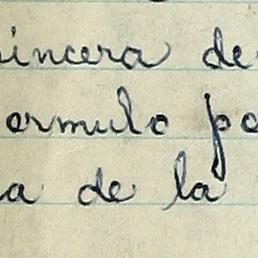 sincera de
ormulo po
a de la